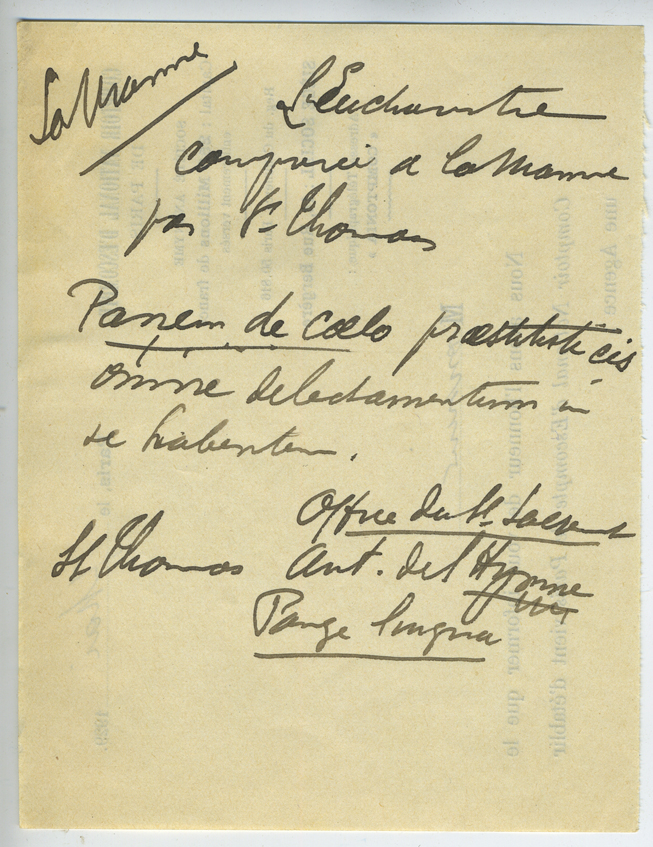 La Manne
L'Eucharistie
comparée à la Manne
par St Thomas
Panem de cœlo præstitisti eis
omne delectamentum in
se habentem.
Office du St Sacrement
St Thomas Ant. de l'Hymne
Pange lingua